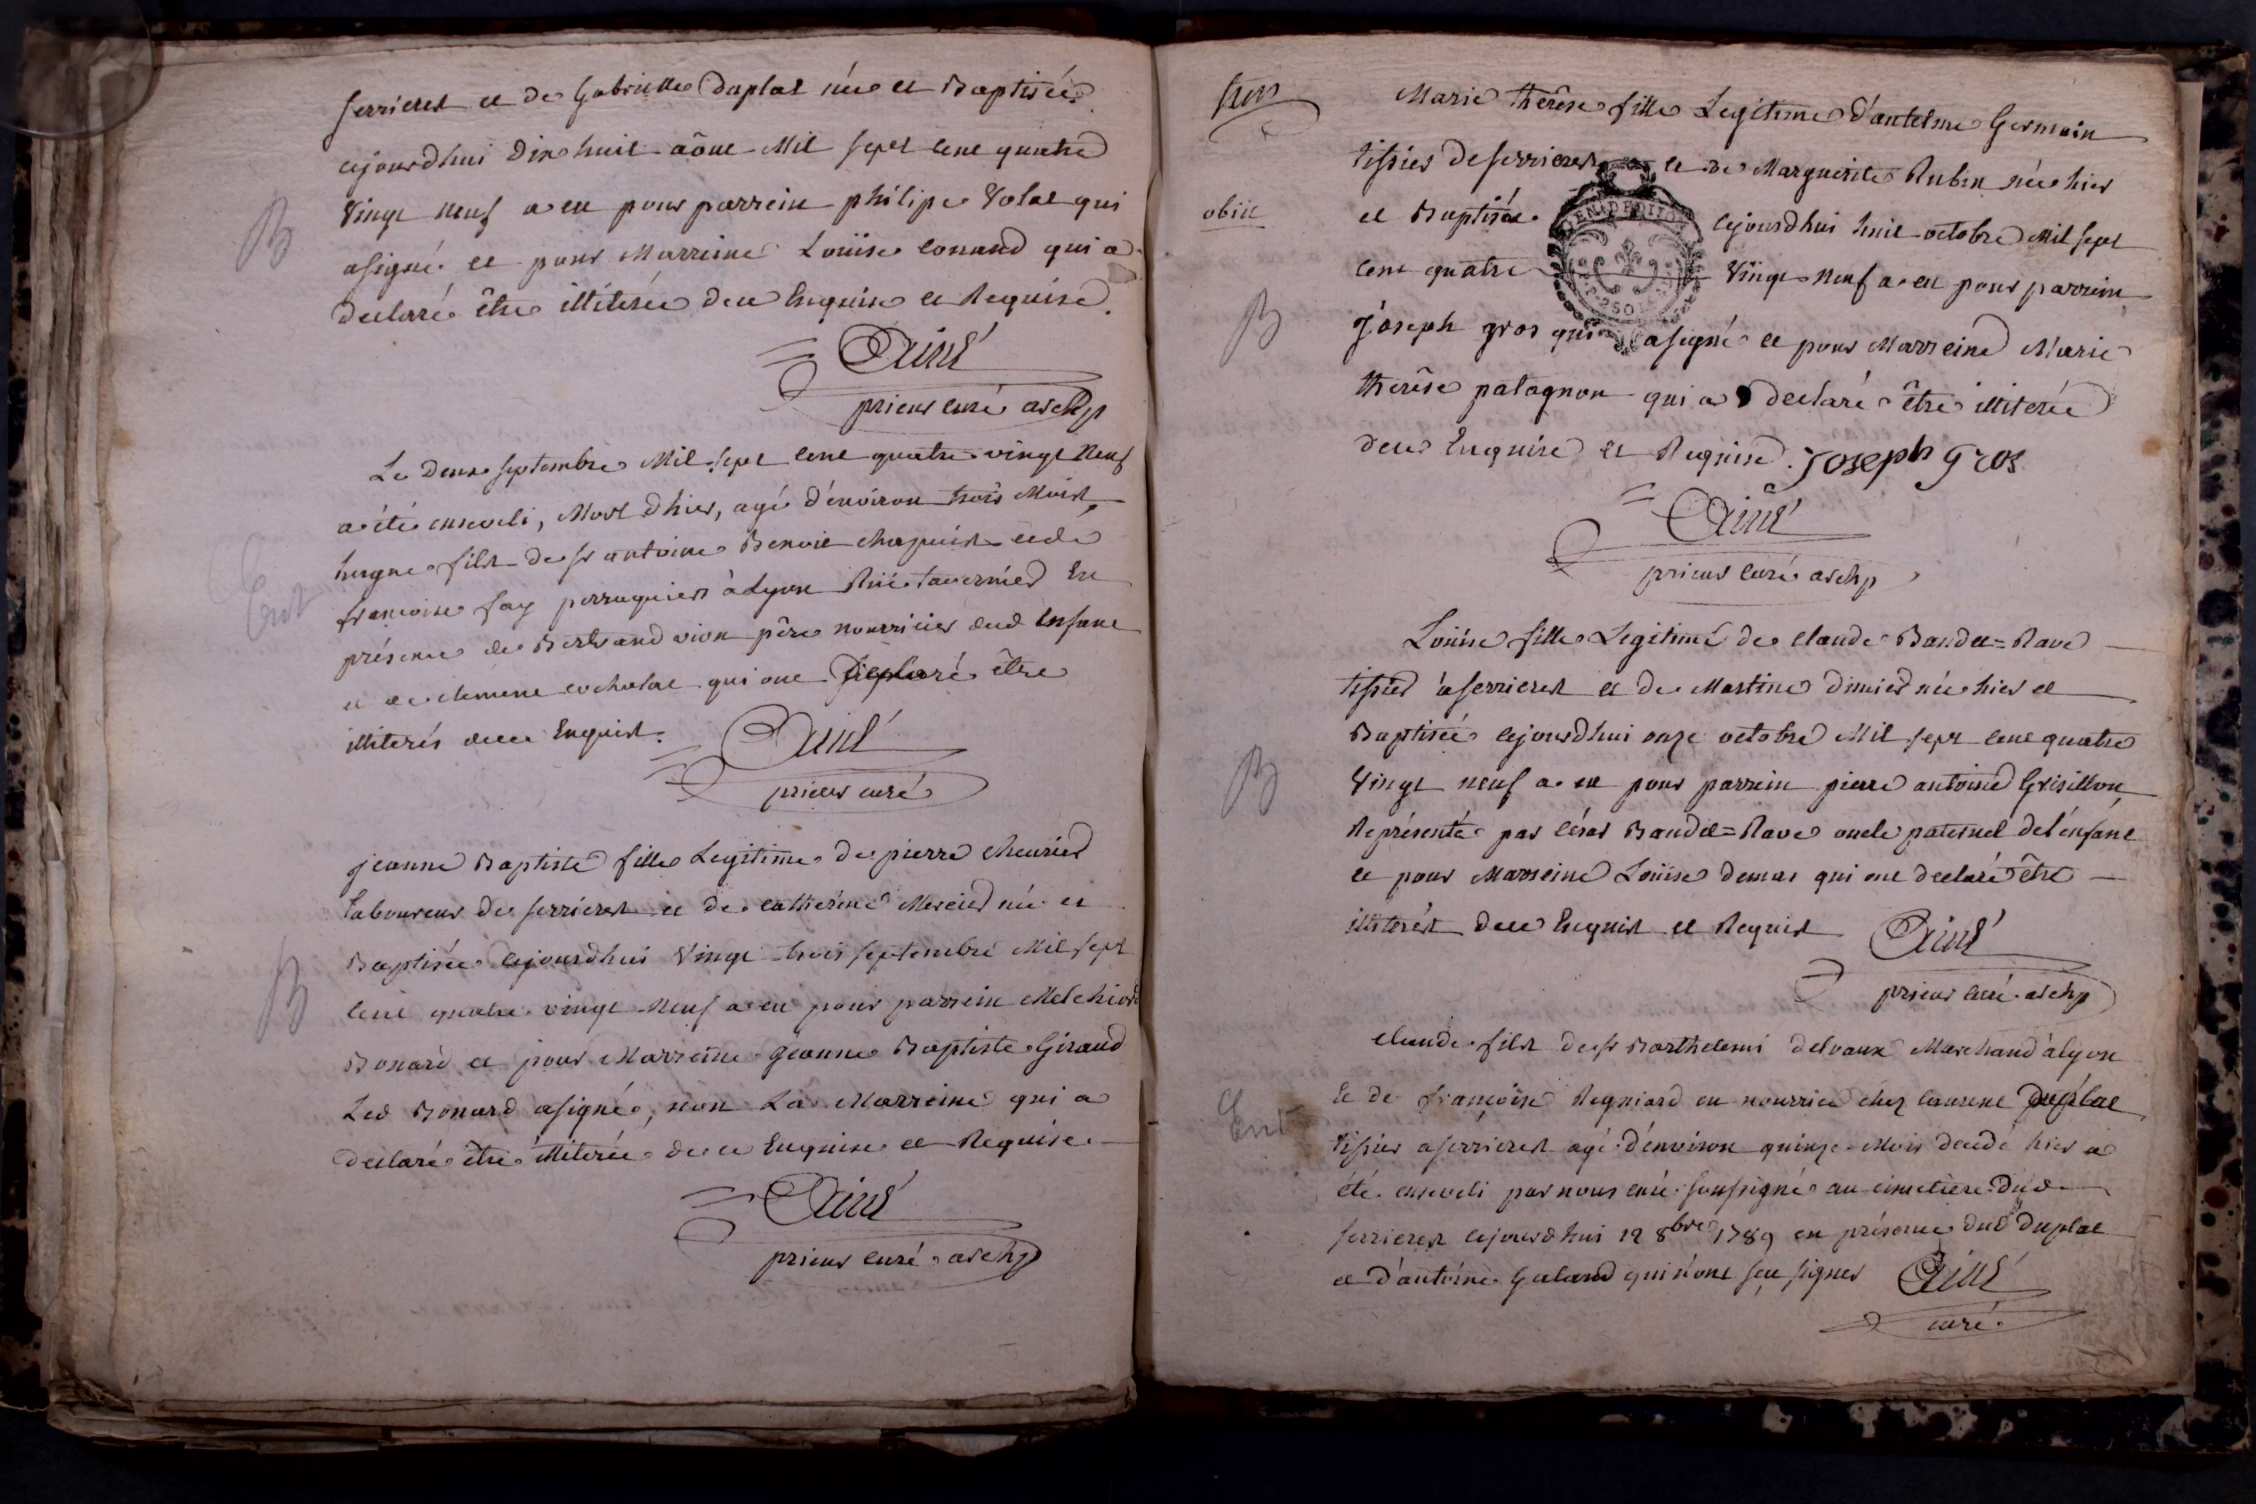 ferrieres et de Gabrielle Duplat née et Baptisée
cejourdhui Dix huit aôut Mil sept cent quatre
B
Vingt neuf a eu pour parrein philipe Volat qui
asigné et pour Marreine Loüise conand qui a
declaré être illiterée de ce Enquise et Requise.
Ainé
prieur curé archp
Le Deux septembre Mil sept cent quatre vingt Neuf
a été enseveli, Mort d'hier, agé d'environ trois Mois,
hugue fils de sr antoine Benoit chapuis et de
Ent
francoise fay perruquier à Lyon Rüe taverníer En
présence de Bertrand vion père nourricier dud Enfant
et de clement cochatat qui ont Declaré être
illiterés de ce Enquist.
Ainé
prieur curé
jeanne Baptiste fille Legitime de pierre cheurier
Laboureur de ferrieres et de catherine Mercier née et
B
Baptisée cejourdhui Vingt trois septembre Mil sept
cent quatre vingt Neuf a eu pour parrein Melchior
Bonard et pour Marreine jeanne Baptiste Giraud
Led Bonard asigné, non La Marreine qui a
declaré être illiterée de ce Enquise et Requise.
Ainé
prieur curé archp
Marie thérèse fille Legitime d'antelme Germain
tissier de ferrieres et de Marguerite Rubin née hier
obiit
et Baptisée cejourdhui huit octobre Mil sept
cent quatre Vingt Neuf a eu pour parrein
B
joseph gros qui asigné et pour Marreine Marie
therêse patagnon qui a declaré être illiterée
de ce Enquise et Requise. joseph gros
Ainé
prieur curé archp
Loüise fille Legitime de claude Bandet=Rave
tissier a ferrieres et de Martine dimier née hier et
Baptisée cejourdhui onze octobre Mil sept cent quatre
B
Vingt neuf a eu pour parrein pierre antoine Grisillon
Représenté par César Bandet=Rave oncle paternel de l'enfant
et pour Marreine Loüise demas qui ont declaré être
illiterés de ce Enquis et Requis
Ainé
prieur curé archp
claude fils de sr Barthelemi delvaux Marchand a lyon
Et de françoise Regniard en nourrice chez Laurent Duplat
Ent
tissier a ferrieres agé d'environ quinze Mois decedé hier a
été enseveli par nous curé soussigné au cimetière dud
ferrieres cejourdhui 12 8bre 1789 en présence dud Duplat
et d'antoine Galand qui n'ont sçu signer
Ainé
curé.